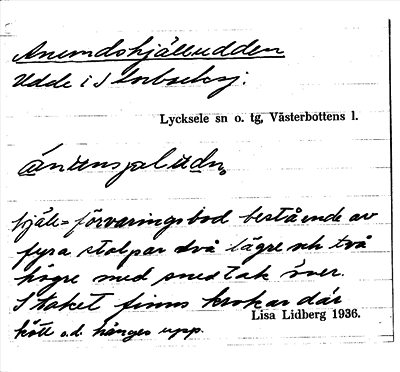 Anundshjälludden
Udde i S
Lycksele sn o. tg, Västerbottens l.
hjäll = förvaringsbod bestående av
fyra stolpar två lägre och två
högre med snedtak över.
I taket finns krokar där
kött o.d. hänges upp.
Lisa Lidberg 1936.